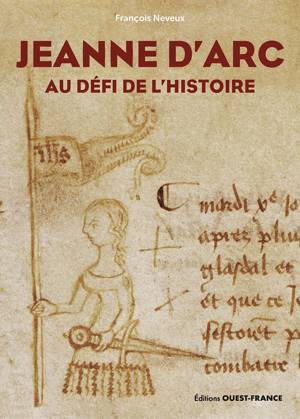 François Neveux
JEANNE D'ARC
AU DÉFI DE L'HISTOIRE
ihs
mardi xe jo
aprez plu
glasdal et
et que ce
combatre
Éditions OUEST-FRANCE